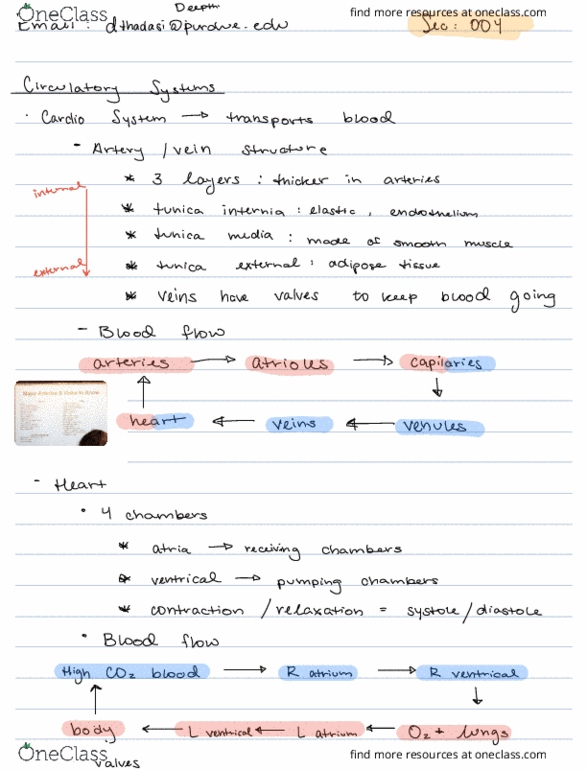 Deepthi
OneClass find more resources at oneclass.com
Email : dthadasi@purdue.edu Sec: 004
Circulatory Systems
· Cardio System → transports blood
- Artery / vein structure
* 3 layers : thicker in arteries
internal
* tunica internia : elastic, endothelium
* tunica media : made of smooth muscle
external
* tunica external : adipose tissue
* veins have valves to keep blood going
- Blood flow
arteries → atrioles → capilaries
heart ← veins ← venules
- Heart
• 4 chambers
* atria → receiving chambers
* ventrical → pumping chambers
* contraction / relaxation = systole / diastole
• Blood flow
High CO₂ blood → R atrium → R ventrical
body ← L ventrical ← L atrium ← O₂ + lungs
OneClass find more resources at oneclass.com
valves